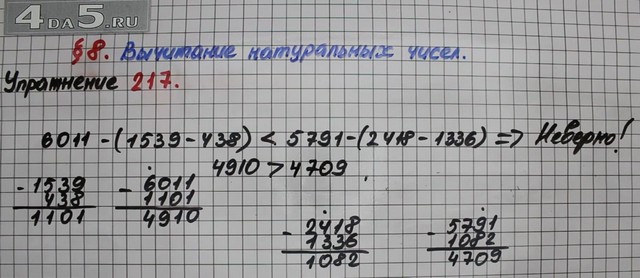 4DA5.RU
§8. Вычитание натуральных чисел.
Упражнение 217.
6011 - (1539 - 438) < 5791 - (2418 - 1336) => Неверно!
4910 > 4709
- 1539
438
1101
- 6011
1101
4910
- 2418
1336
1082
- 5791
1082
4709